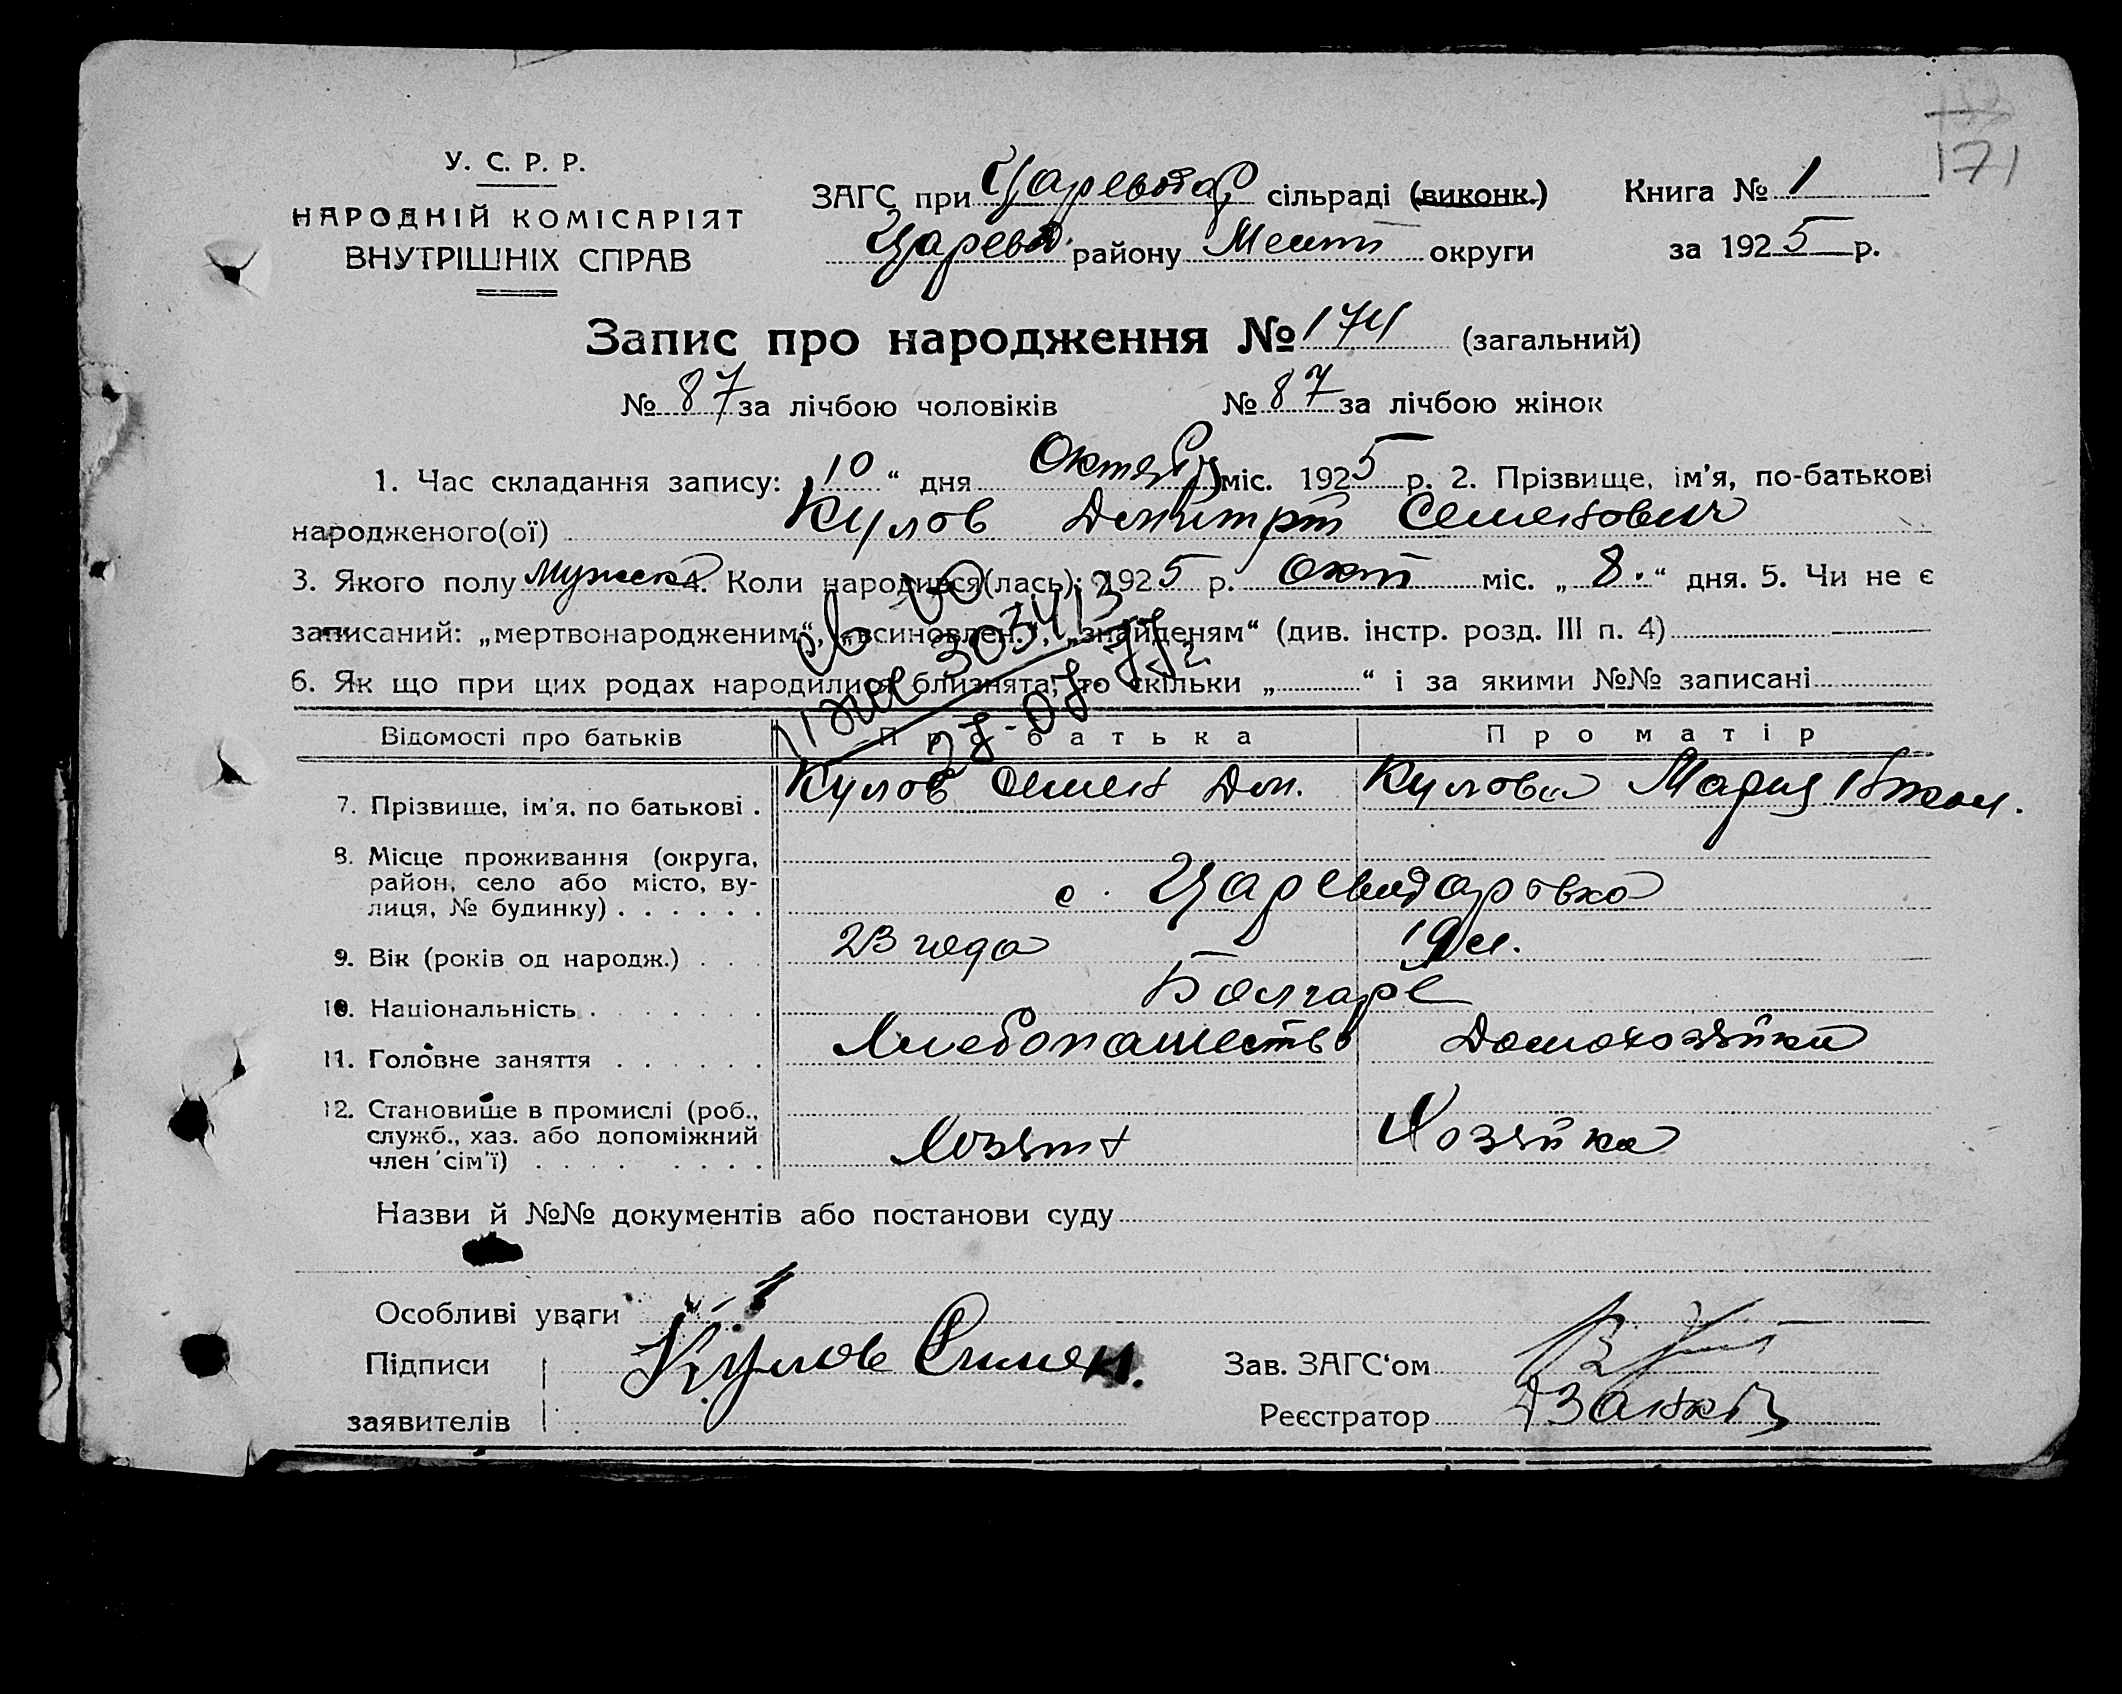 171
У. С. Р. Р.
НАРОДНІЙ КОМІСАРІЯТ
ВНУТРІШНІХ СПРАВ
ЗАГС при Царевод сільраді (виконк.) Книга № 1
Царевод. району Мелит округи за 1925 р.
Запис про народження № 174 (загальний)
№ 87 за лічбою чоловіків № 87 за лічбою жінок
1. Час складання запису: „10“ дня Октября міс. 1925 р. 2. Прізвище, ім'я, по-батькові
народженого(ої) Кулов Димитрий Семенович
3. Якого полу Мужск 4. Коли народився(лась): 1925 р. Окт міс. „8.“ дня. 5. Чи не є
записаний: „мертвонародженим“, „всиновлен.“, „знайденям“ (див. інстр. розд. III п. 4)
6. Як що при цих родах народилися близнята, то скільки „ “ і за якими №№ записані
303413
Відомості про батьків Про батька Про матір
7. Прізвище, ім'я, по батькові . Кулов Семен Дм. Кулова Мария
8. Місце проживання (округа,
район, село або місто, ву-
лиця, № будинку) . . . . . . с. Царевидаровка
9. Вік (років од народж.) . . . 23 года 19 л.
10. Національність . . . . . . . Болгаре
11. Головне заняття . . . . . . Хлебопашество Домохозяйка
12. Становище в промислі (роб.,
служб., хаз. або допоміжний
член сім'ї) . . . . . . . . Хозяин Хозяйка
Назви й №№ документів або постанови суду
Особливі уваги
Підписи Кулов Симен. Зав. ЗАГС'ом
заявителів Реєстратор